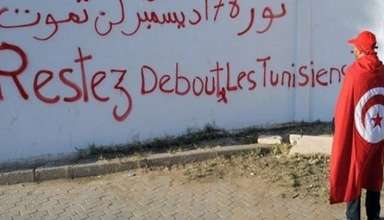 ثورة 17 ديسمبر لن تموت
Restez Debout, Les Tunisiens